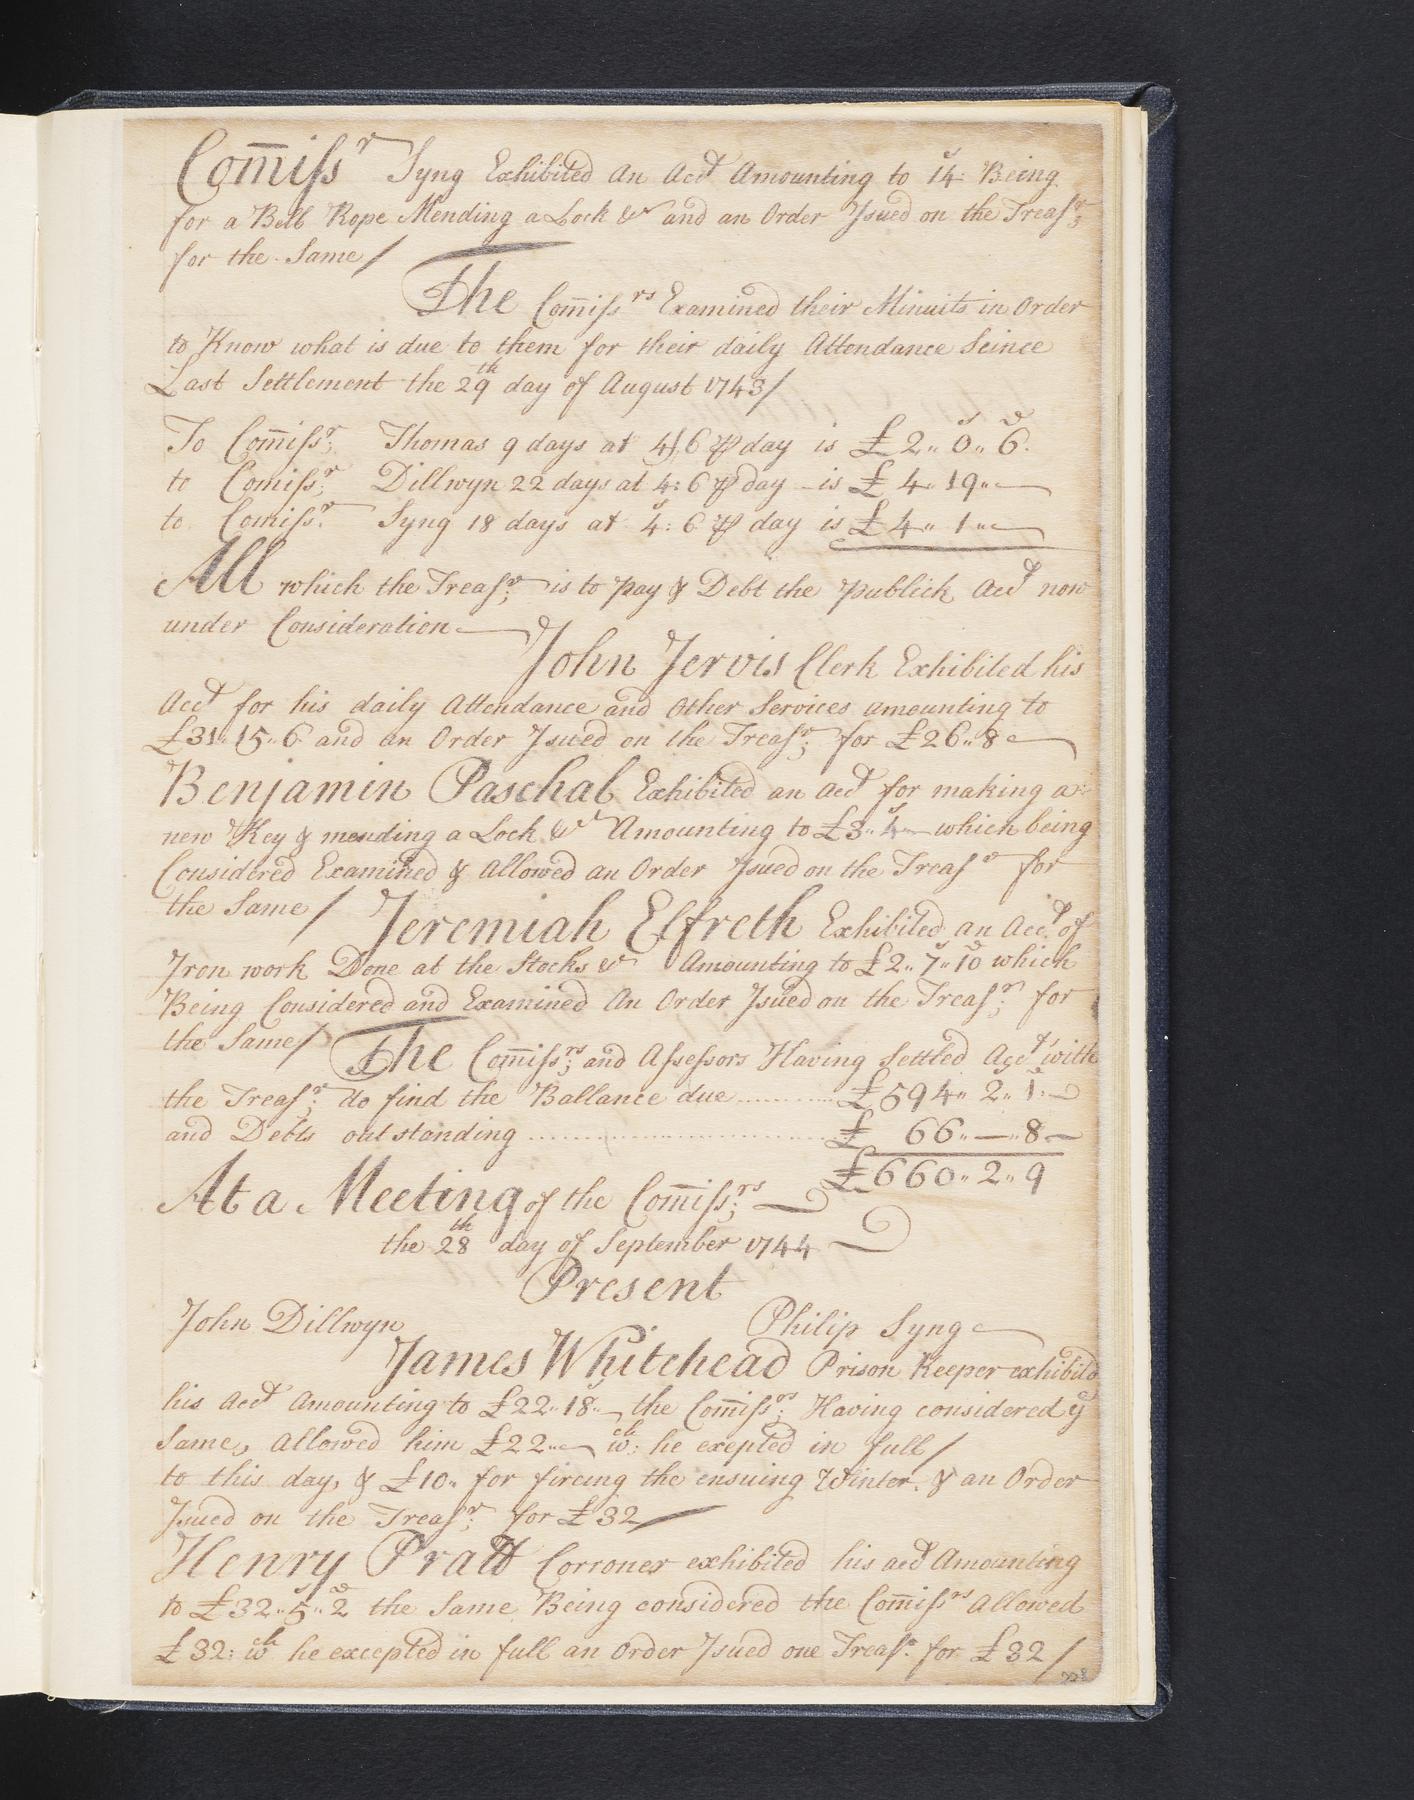 Com̄issr Syng Exhibited an Acct Amounting to 14s: Being
for a Bell Rope Mending a Lock &c and an Order Issued on the Treasr;
for the Same/
The Com̄issrs Examined their Minuits in Order
to Know what is due to them for their daily Attendance Seince
Last Settlement the 29th day of August 1743/
To Com̄issr; Thomas 9 days at 4/6 ⅌ day is £2,,0s,,6d.
to Comissr; Dillwyn 22 days at 4:6 ⅌ day – is £4,,19,,—
to Comissr: Syng 18 days at 4s:6 ⅌ day is £4,,1,,—
All which the Treasr; is to pay & Debt the publick Acct now
under Consideration —
John Jervis Clerk Exhibited his
Acct for his daily Attendance and Other Services amounting to
£31,,15,,6 and an Order Issued on the Treasr; for £26,,8 —
Benjamin Paschal Exhibited an acct for making a
new Key & mending a Lock &c Amounting to £3,,4s— which being
Considered Examined & Allowed an Order Issued on the Treasr for
the Same/ Jeremiah Elfreth Exhibited an Acct. of
Iron work Done at the Stocks &c Amounting to £2,,7s,,10d which
Being Considered and Examined An Order Issued on the Treasr; for
the Same/ The Com̄issrs; and Assessors Having Settled Acct with
the Treasr; do find the Ballance due .......... £594,,2s,,1d:—
and Debts outstanding .......................... £ 66,,—,,8—
£660,,2,,9
At a Meeting of the Com̄issrs; —
the 28th day of September 1744
Present
John Dillwyn Philip Syng —
James Whitehead Prison Keeper exhibitd
his Acct Amounting to £22,,18s,,— the Com̄issrs; Having considered ye
Same, Allowed him £22,,— wch: he exepted in full/
to this day, & £10,, for fireing the ensuing Winter. & an Order
Isued on the Treasr; for £32/
Henry Pratt Corroner exhibited his acct Amounting
to £32,,5s,,2d the Same Being considered the Com̄issrs Allowed
£32: wch he excepted in full an Order Isued one Treasr: for £32/